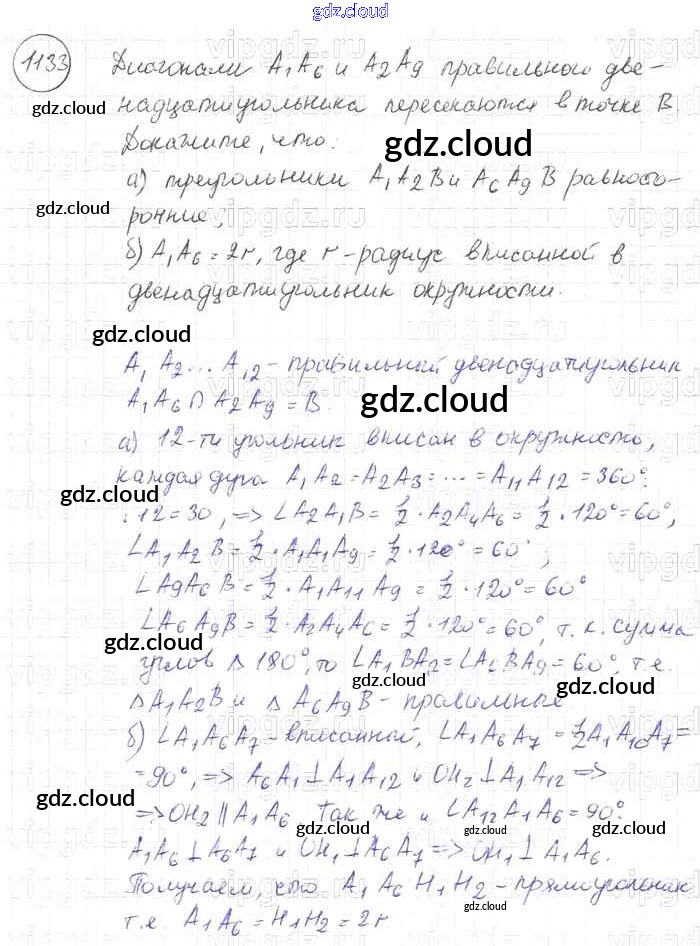 gdz.cloud
1133 Диагонали A₁A₆ и A₂A₉ правильного две-
gdz.cloud надцатиугольника пересекаются в точке B.
Докажите, что: gdz.cloud
а) треугольники A₁A₂B и A₆A₉B равносто-
gdz.cloud ронние;
б) A₁A₆ = 2r, где r - радиус вписанной в
двенадцатиугольник окружности.
gdz.cloud
A₁A₂...A₁₂ - правильный двенадцатиугольник
A₁A₆ ∩ A₂A₉ = B. gdz.cloud
а) 12-ти угольник вписан в окружность,
каждая дуга A₁A₂ = A₂A₃ = ... = A₁₁A₁₂ = 360°:
gdz.cloud
:12 = 30, => ∠A₂A₁B = 1/2 · A₂A₄A₆ = 1/2 · 120° = 60°,
∠A₁A₂B = 1/2 · A₁A₁A₉ = 1/2 · 120° = 60°,
gdz.cloud
∠A₉A₆B = 1/2 · A₁A₁₁A₉ = 1/2 · 120° = 60°
∠A₆A₉B = 1/2 · A₂A₄A₆ = 1/2 · 120° = 60°, т.к. сумма
gdz.cloud
углов Δ 180°, то ∠A₁BA₂ = ∠A₆BA₉ = 60°, т.е.
gdz.cloud gdz.cloud
ΔA₁A₂B и ΔA₆A₉B - правильные
б) ∠A₁A₆A₇ - вписанный, ∠A₁A₆A₇ = 1/2 A₁A₁₀A₇ =
= 90°, => A₆A₁ ⊥ A₁A₁₂ и OH₂ ⊥ A₁A₁₂ =>
gdz.cloud
=> OH₂ ∥ A₁A₆. Так же и ∠A₁₂A₁A₆ = 90°.
gdz.cloud gdz.cloud
A₁A₆ ⊥ A₆A₇ и OH₁ ⊥ A₆A₇ => OH₁ ⊥ A₁A₆.
gdz.cloud
Получаем, что A₁A₆H₁H₂ - прямоугольник
gdz.cloud
т.е. A₁A₆ = H₁H₂ = 2r
gdz.cloud